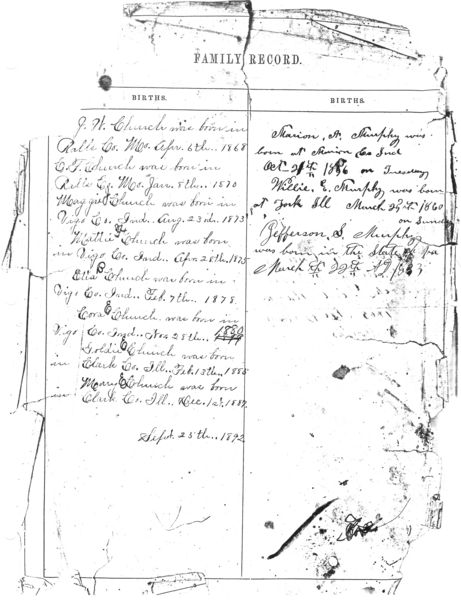 FAMILY RECORD.
BIRTHS.
J. W. Church was born in
Ralls Co. Mo. Apr. 6th, 1868
C. F. Church was born in
Ralls Co. Mo. Jan. 8th, 1870
Church was born in
Vigo Co. Ind. Aug. 23rd, 1873
Church was born
in Vigo Co. Ind. Apr 28th, 1875
Church was born in
Vigo Co. Ind. Feb. 7th, 1878.
Cora E Church was born in
Vigo Co. Ind. Nov 28th, 1880
Goldie E Church was born
in Clark Co. Ill. Feb. 13th, 1885
Mary E Church was born
in Clark Co. Ill. Dec. 1st, 1887.
Sept. 25th, 1892
BIRTHS.
Marion, A. Murphy was
born at Marion Co Ind
Oct on Tuesday
Willie. E. Murphy was born
at York Ill March 1860
on
Jefferson, S. Murphy
was born in the State of
March